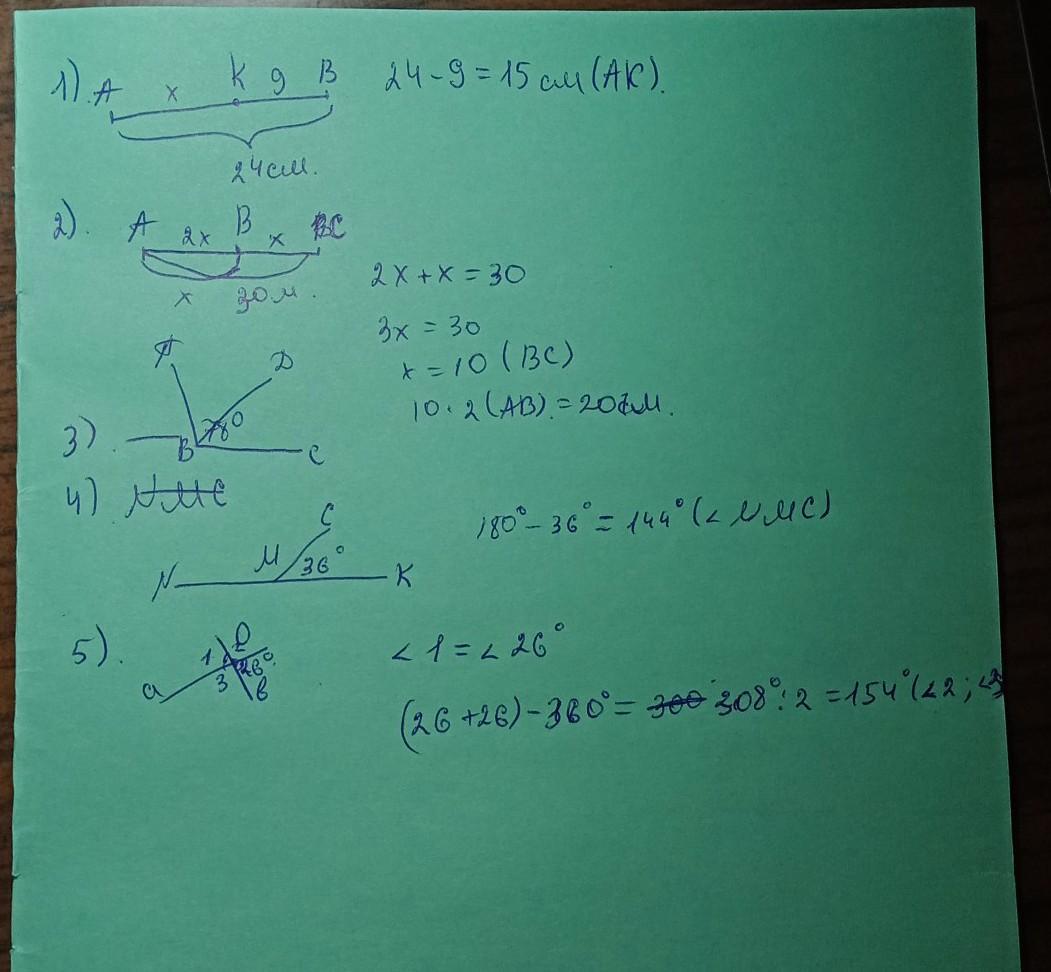 1). A x K 9 B 24 - 9 = 15 см (AK).
24 см.
2). A 2x B x C
x 30 м.
2x + x = 30
3x = 30
x = 10 (BC)
10 · 2 (AB) = 20 см.
A D
3) 78°
B C
4) NMC
180° - 36° = 144° (∠ NMC)
C
M 36°
N K
5). O ∠ 1 = ∠ 26°
1 2 26°
a 3 b
(26 + 26) - 360° = 300 308° : 2 = 154° (∠2; ∠3